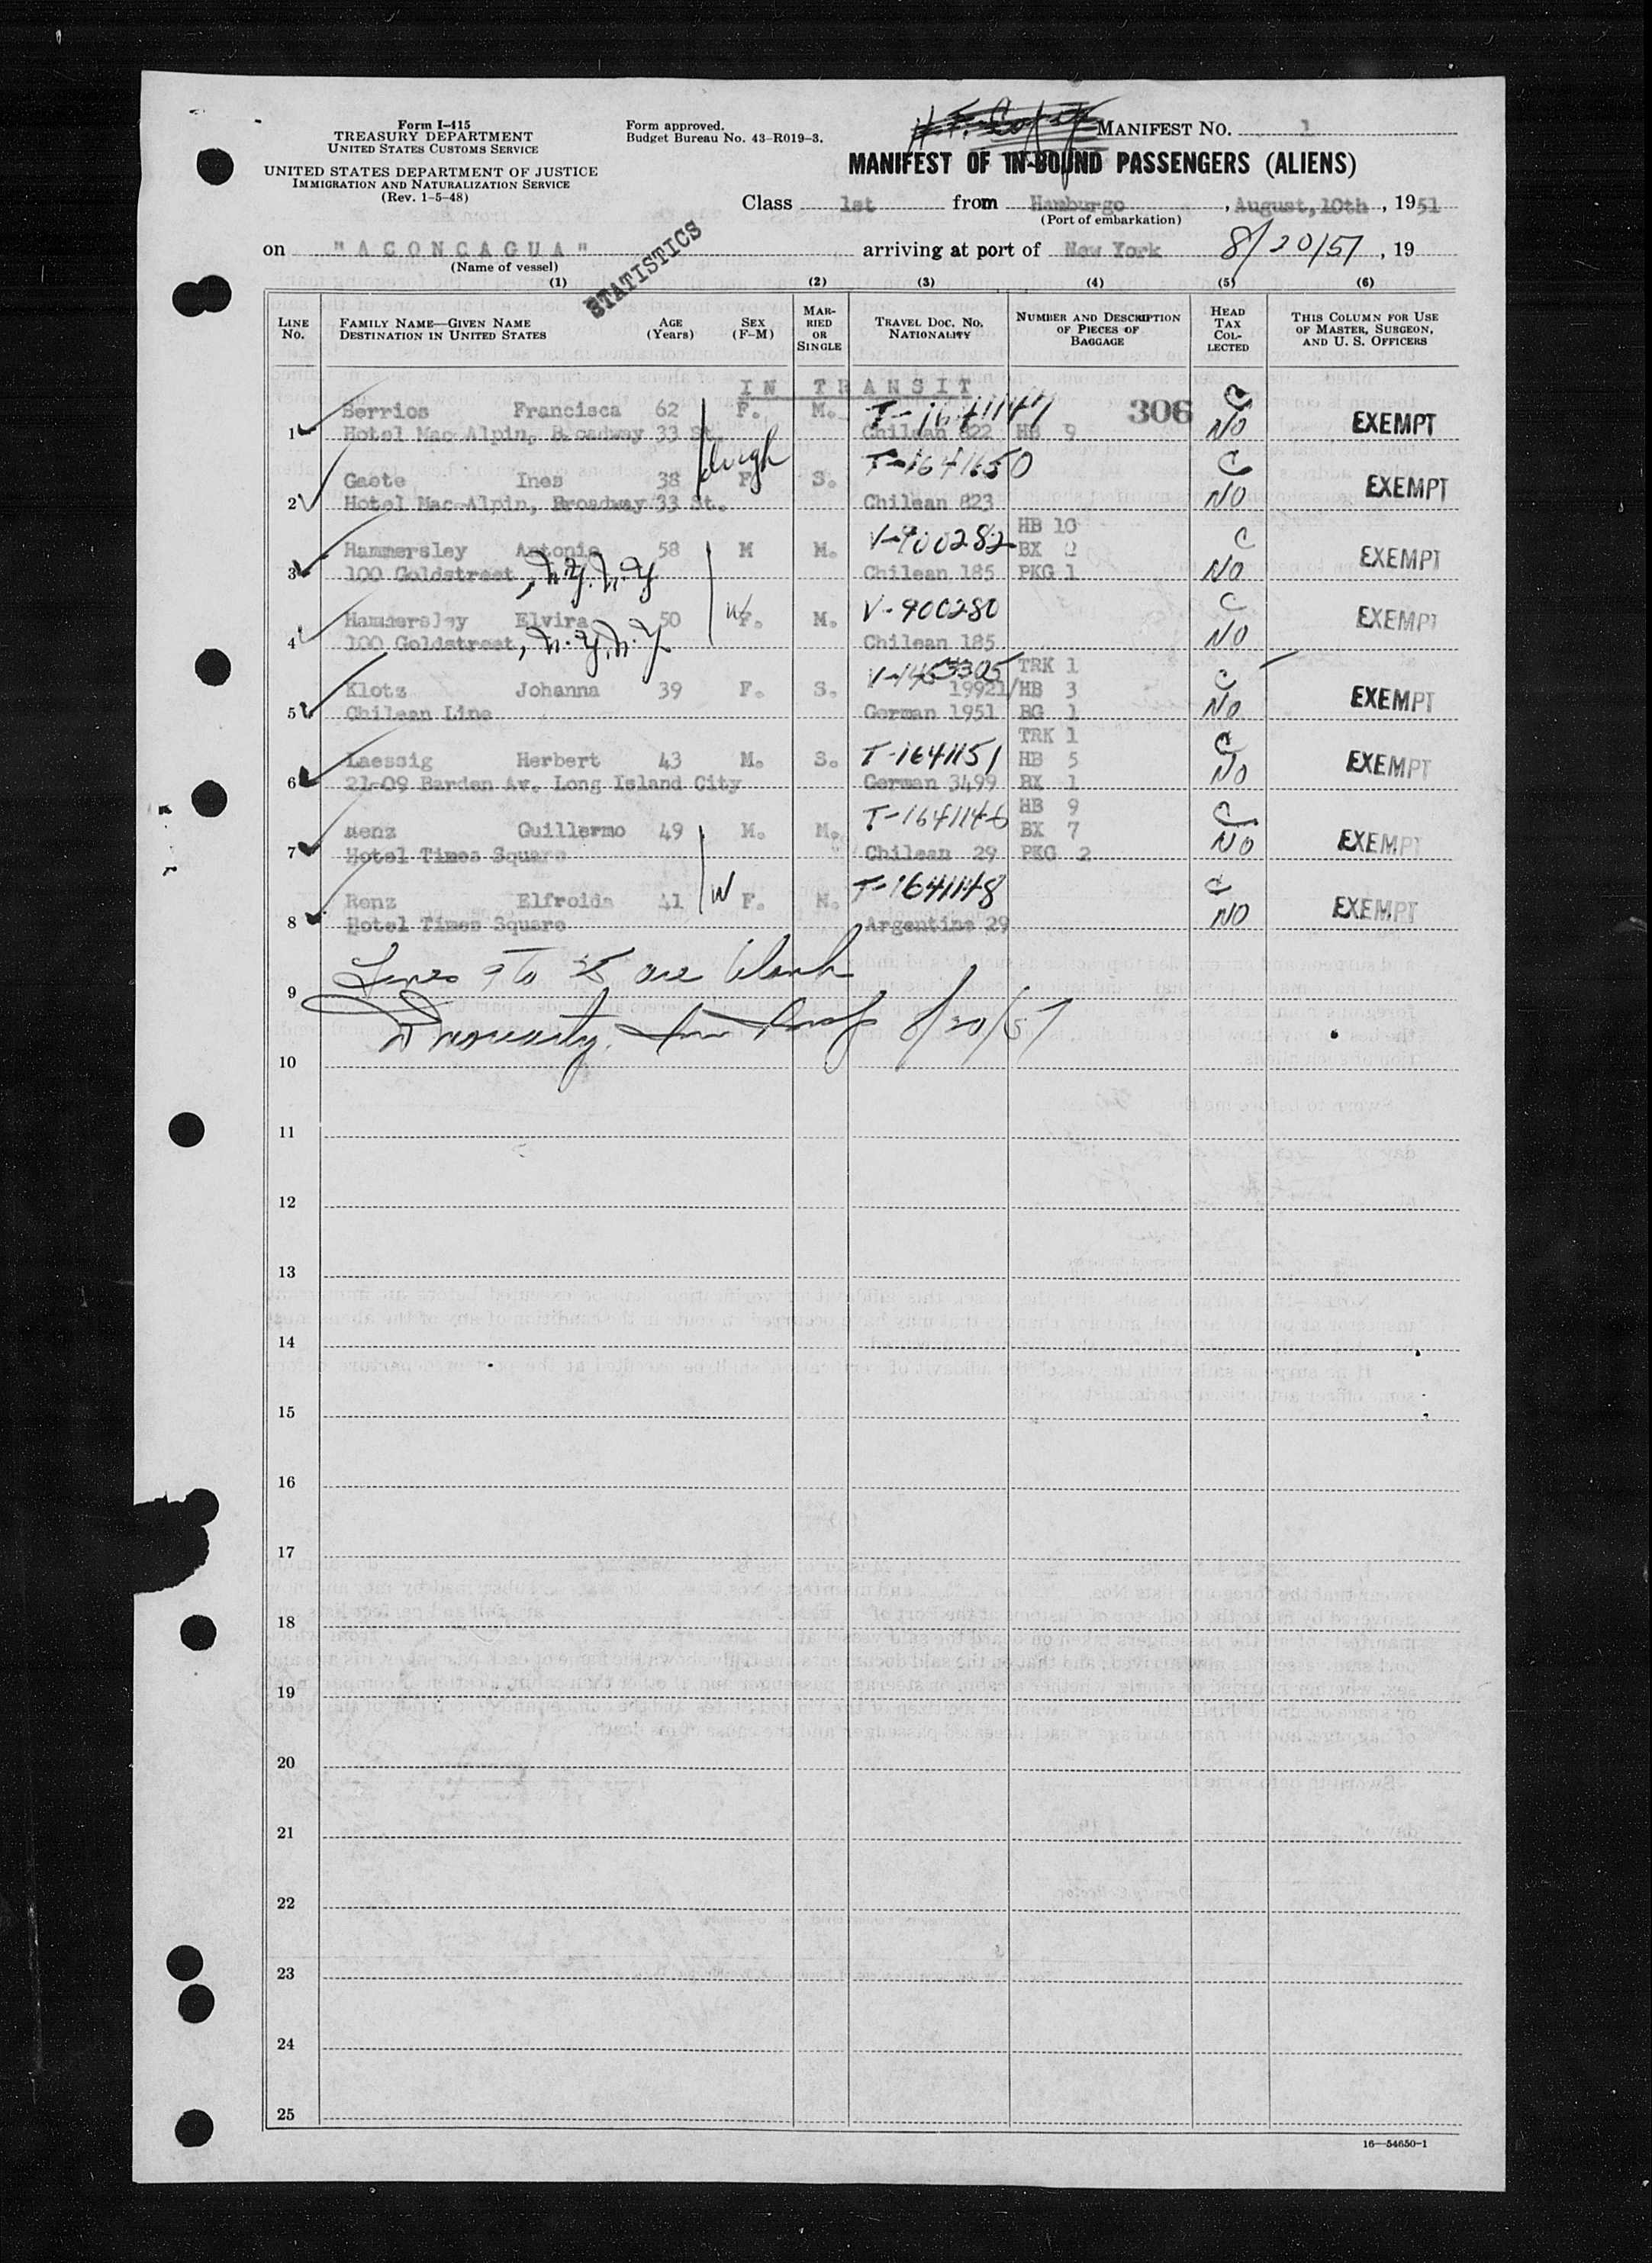 Form I-415
TREASURY DEPARTMENT
UNITED STATES CUSTOMS SERVICE
UNITED STATES DEPARTMENT OF JUSTICE
IMMIGRATION AND NATURALIZATION SERVICE
(Rev. 1-5-48)
Form approved.
Budget Bureau No. 43-R019-3.
MANIFEST NO. 1
MANIFEST OF IN-BOUND PASSENGERS (ALIENS)
Class 1st from Hamburgo, August, 10th, 1951
(Port of embarkation)
on "ACONCAGUA" arriving at port of New York 8/20/51, 19
(Name of vessel)
STATISTICS
(1) (2) (3) (4) (5) (6)
LINE No. FAMILY NAME—GIVEN NAME DESTINATION IN UNITED STATES AGE (Years) SEX (F-M) MARRIED OR SINGLE TRAVEL DOC. NO. NATIONALITY NUMBER AND DESCRIPTION OF PIECES OF BAGGAGE HEAD TAX COLLECTED THIS COLUMN FOR USE OF MASTER, SURGEON, AND U. S. OFFICERS
IN TRANSIT
Berrios Francisca 62 F. M. 306 C
1 Hotel Mac Alpin, Broadway 33 St. Chilean 822 HB 9 NO EXEMPT
daugh
Gaete Ines 38 F S. T-1641650 C
2 Hotel Mac-Alpin, Broadway 33 St. Chilean 823 NO EXEMPT
HB 10
Hammersley Antonio 58 M M. V-900282 BX 2 C
3 100 Goldstreet, N.Y. N.Y Chilean 185 PKG 1 NO EXEMPT
Hammersley Elvira 50 W F. M. V-900280 C
4 100 Goldstreet, N.Y. N.Y Chilean 185 NO EXEMPT
TRK 1
Klotz Johanna 39 F. S. 19921/ HB 3 C
5 Chilean Line German 1951 BG 1 NO EXEMPT
TRK 1
Laessig Herbert 43 M. S. T-1641151 HB 5 C
6 21-09 Barden Av. Long Island City German 3499 BX 1 NO EXEMPT
HB 9
Renz Guillermo 49 M. M. T-1641146 BX 7 C
7 Hotel Times Square Chilean 29 PKG 2 NO EXEMPT
Renz Elfroida 41 W F. M. T-1641148 C
8 Hotel Times Square Argentine 29 NO EXEMPT
Lines 9 to 25 are blank
9
8/20/51
10
11
12
13
14
15
16
17
18
19
20
21
22
23
24
25
16—54650-1